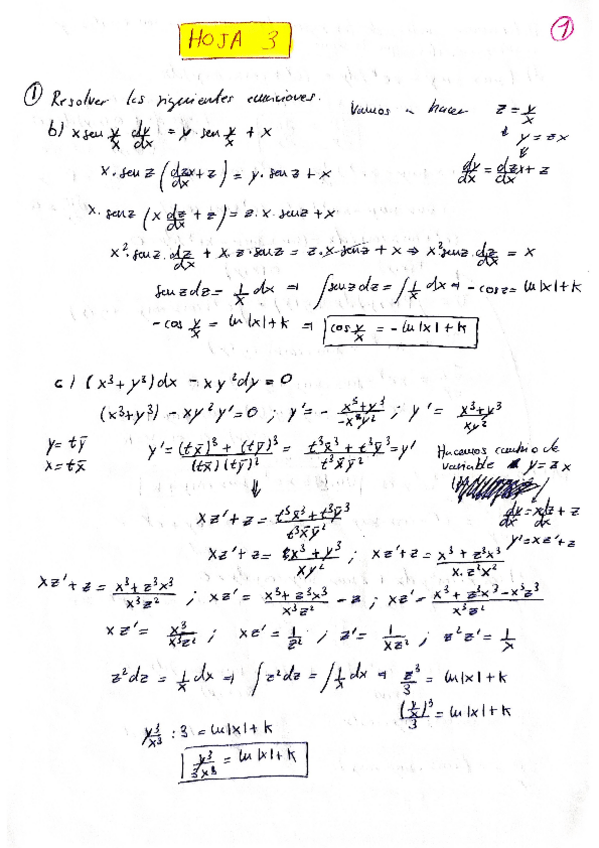 HOJA 3
1
① Resolver las siguientes ecuaciones.
Vamos a hacer z = y/x
↓ y = zx
b) x sen y/x dy/dx = y sen y/x + x
x · sen z (dzx/dx + z) = y · sen z + x
dy/dx = dzx/dx + z
x · sen z (x dz/dx + z) = z · x · sen z + x
x² · sen z · dz/dx + x · z · sen z = z · x · sen z + x ⇒ x² sen z · dz/dx = x
sen z dz = 1/x dx ⇒ ∫ sen z dz = ∫ 1/x dx ⇒ - cos z = ln|x| + k
- cos y/x = ln|x| + k ⇒ cos y/x = - ln|x| + k
c) (x³ + y³) dx - xy² dy = 0
(x³ + y³) - xy² y' = 0 ; y' = - x³ + y³/-xy² ; y' = x³ + y³/xy²
y = tȳ
x = tx̄
y' = (tx̄)³ + (tȳ)³/(tx̄)(tȳ)² = t³x̄³ + t³ȳ³/t³x̄ȳ² = y'
Hacemos cambio de
variable y = zx
⇓
dy/dx = xdz/dx + z
y' = xz' + z
xz' + z = t³x̄³ + t³ȳ³/t³x̄ȳ²
xz' + z = x³ + y³/xy² ; xz' + z = x³ + z³x³/x · z²x²
xz' + z = x³ + z³x³/x³z² ; xz' = x³ + z³x³/x³z² - z ; xz' = x³ + z³x³ - x³z³/x³z²
xz' = x³/x³z² ; xz' = 1/z² ; z' = 1/xz² ; z² z' = 1/x
z² dz = 1/x dx ⇒ ∫ z² dz = ∫ 1/x dx ⇒ z³/3 = ln|x| + k
(y/x)³/3 = ln|x| + k
y³/x³ : 3 = ln|x| + k
y³/3x³ = ln|x| + k